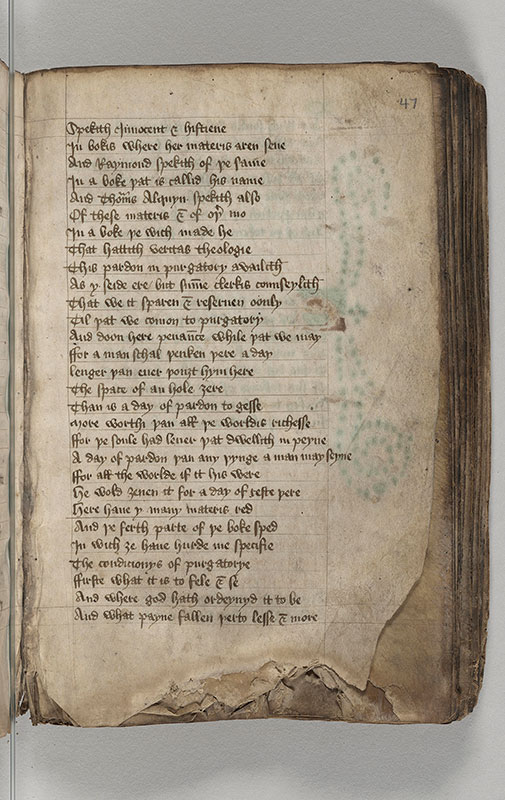 47
Spekith Innocent & histiene
In bokis where her materis aren sene
And Raymond spekith of þe same
In a boke þat is callid his name
And Thomas Alquyn spekith also
Of these materis & of oþer mo
In a boke þe wich made he
That hattith veritas theologie
This pardon in purgatory availith
As y seide ere but summe clerkis counseylith
That we it sparen & reserven oonly
Til þat we comon to purgatory
And doon here penance while þat we may
ffor a man schal þenken þere a day
lenger þan ever þouȝt hym here
The space of an hole ȝere
Than is a day of pardon to gesse
More worth þan all þe worldis richesse
ffor þe soule had lever þat dwellith in peyne
A day of pardon þan any þynge a man may seyne
ffor all the worlde if it his were
He wold ȝeven it for a day of reste þere
Here have y many materis red
And þe ferth parte of þe boke sped
In wich ȝe have hurde me specifie
The condicionys of purgatorye
ffirste what it is to fele & se
And where god hath ordeynyd it to be
And what payne fallen þerto lesse & more